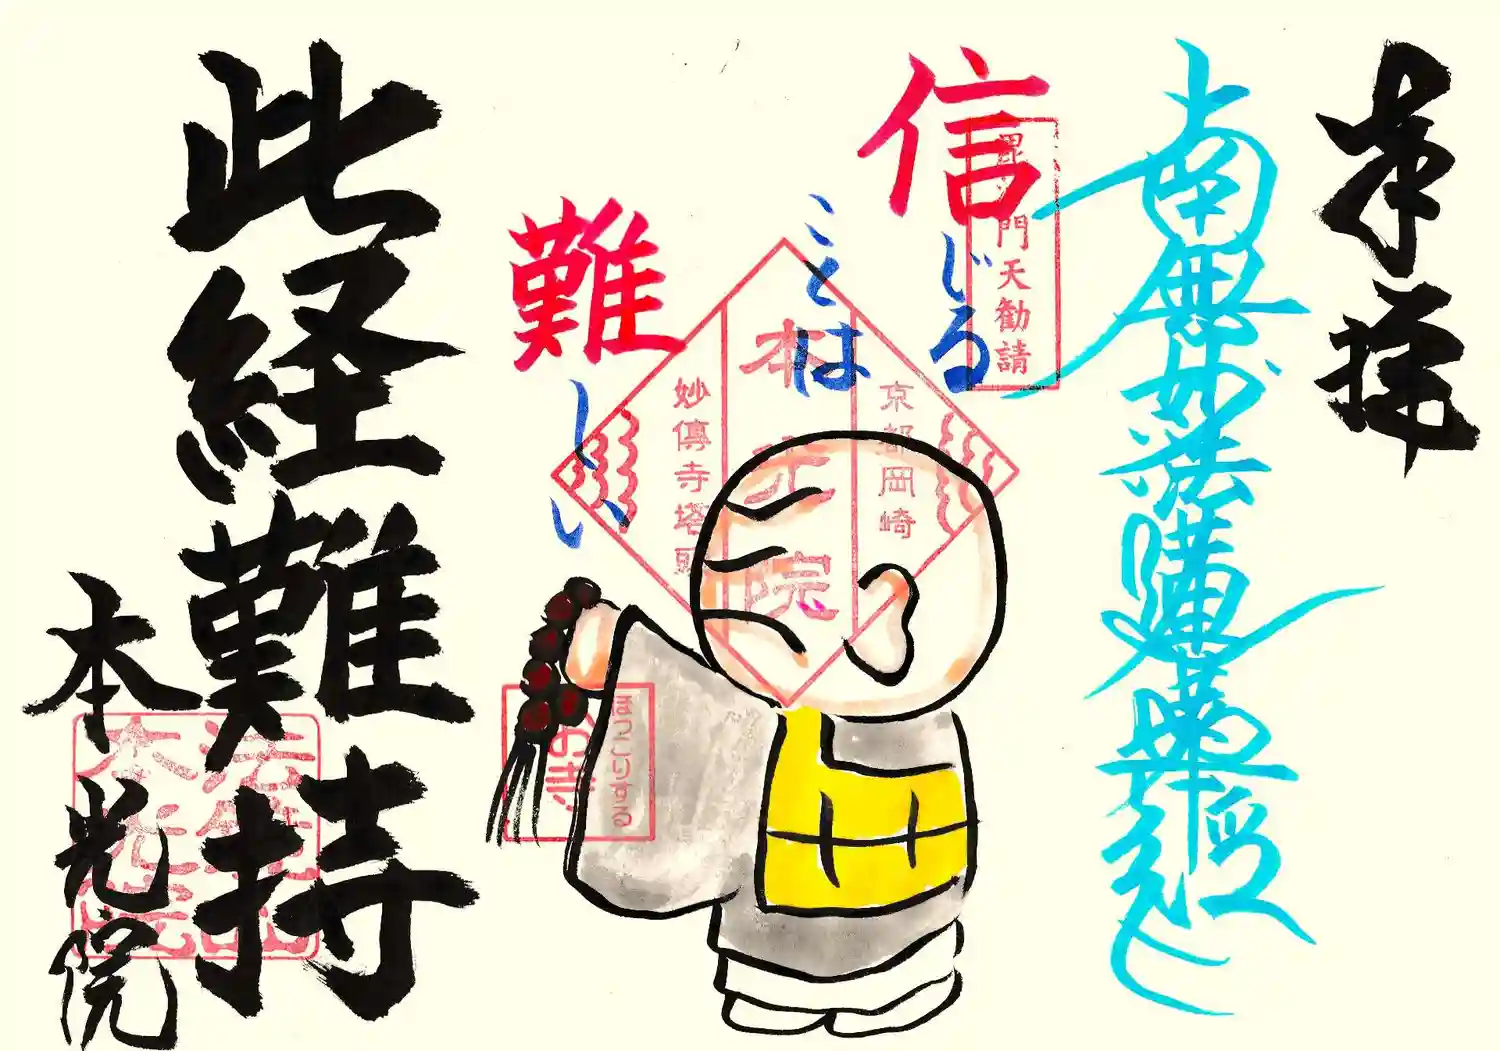 奉拝
南無妙法蓮華経
毘沙門天勧請
信じる
ことは
難しい
京都岡崎
本光院
妙傳寺塔頭
ほっこりする
お寺
此経難持
本光院